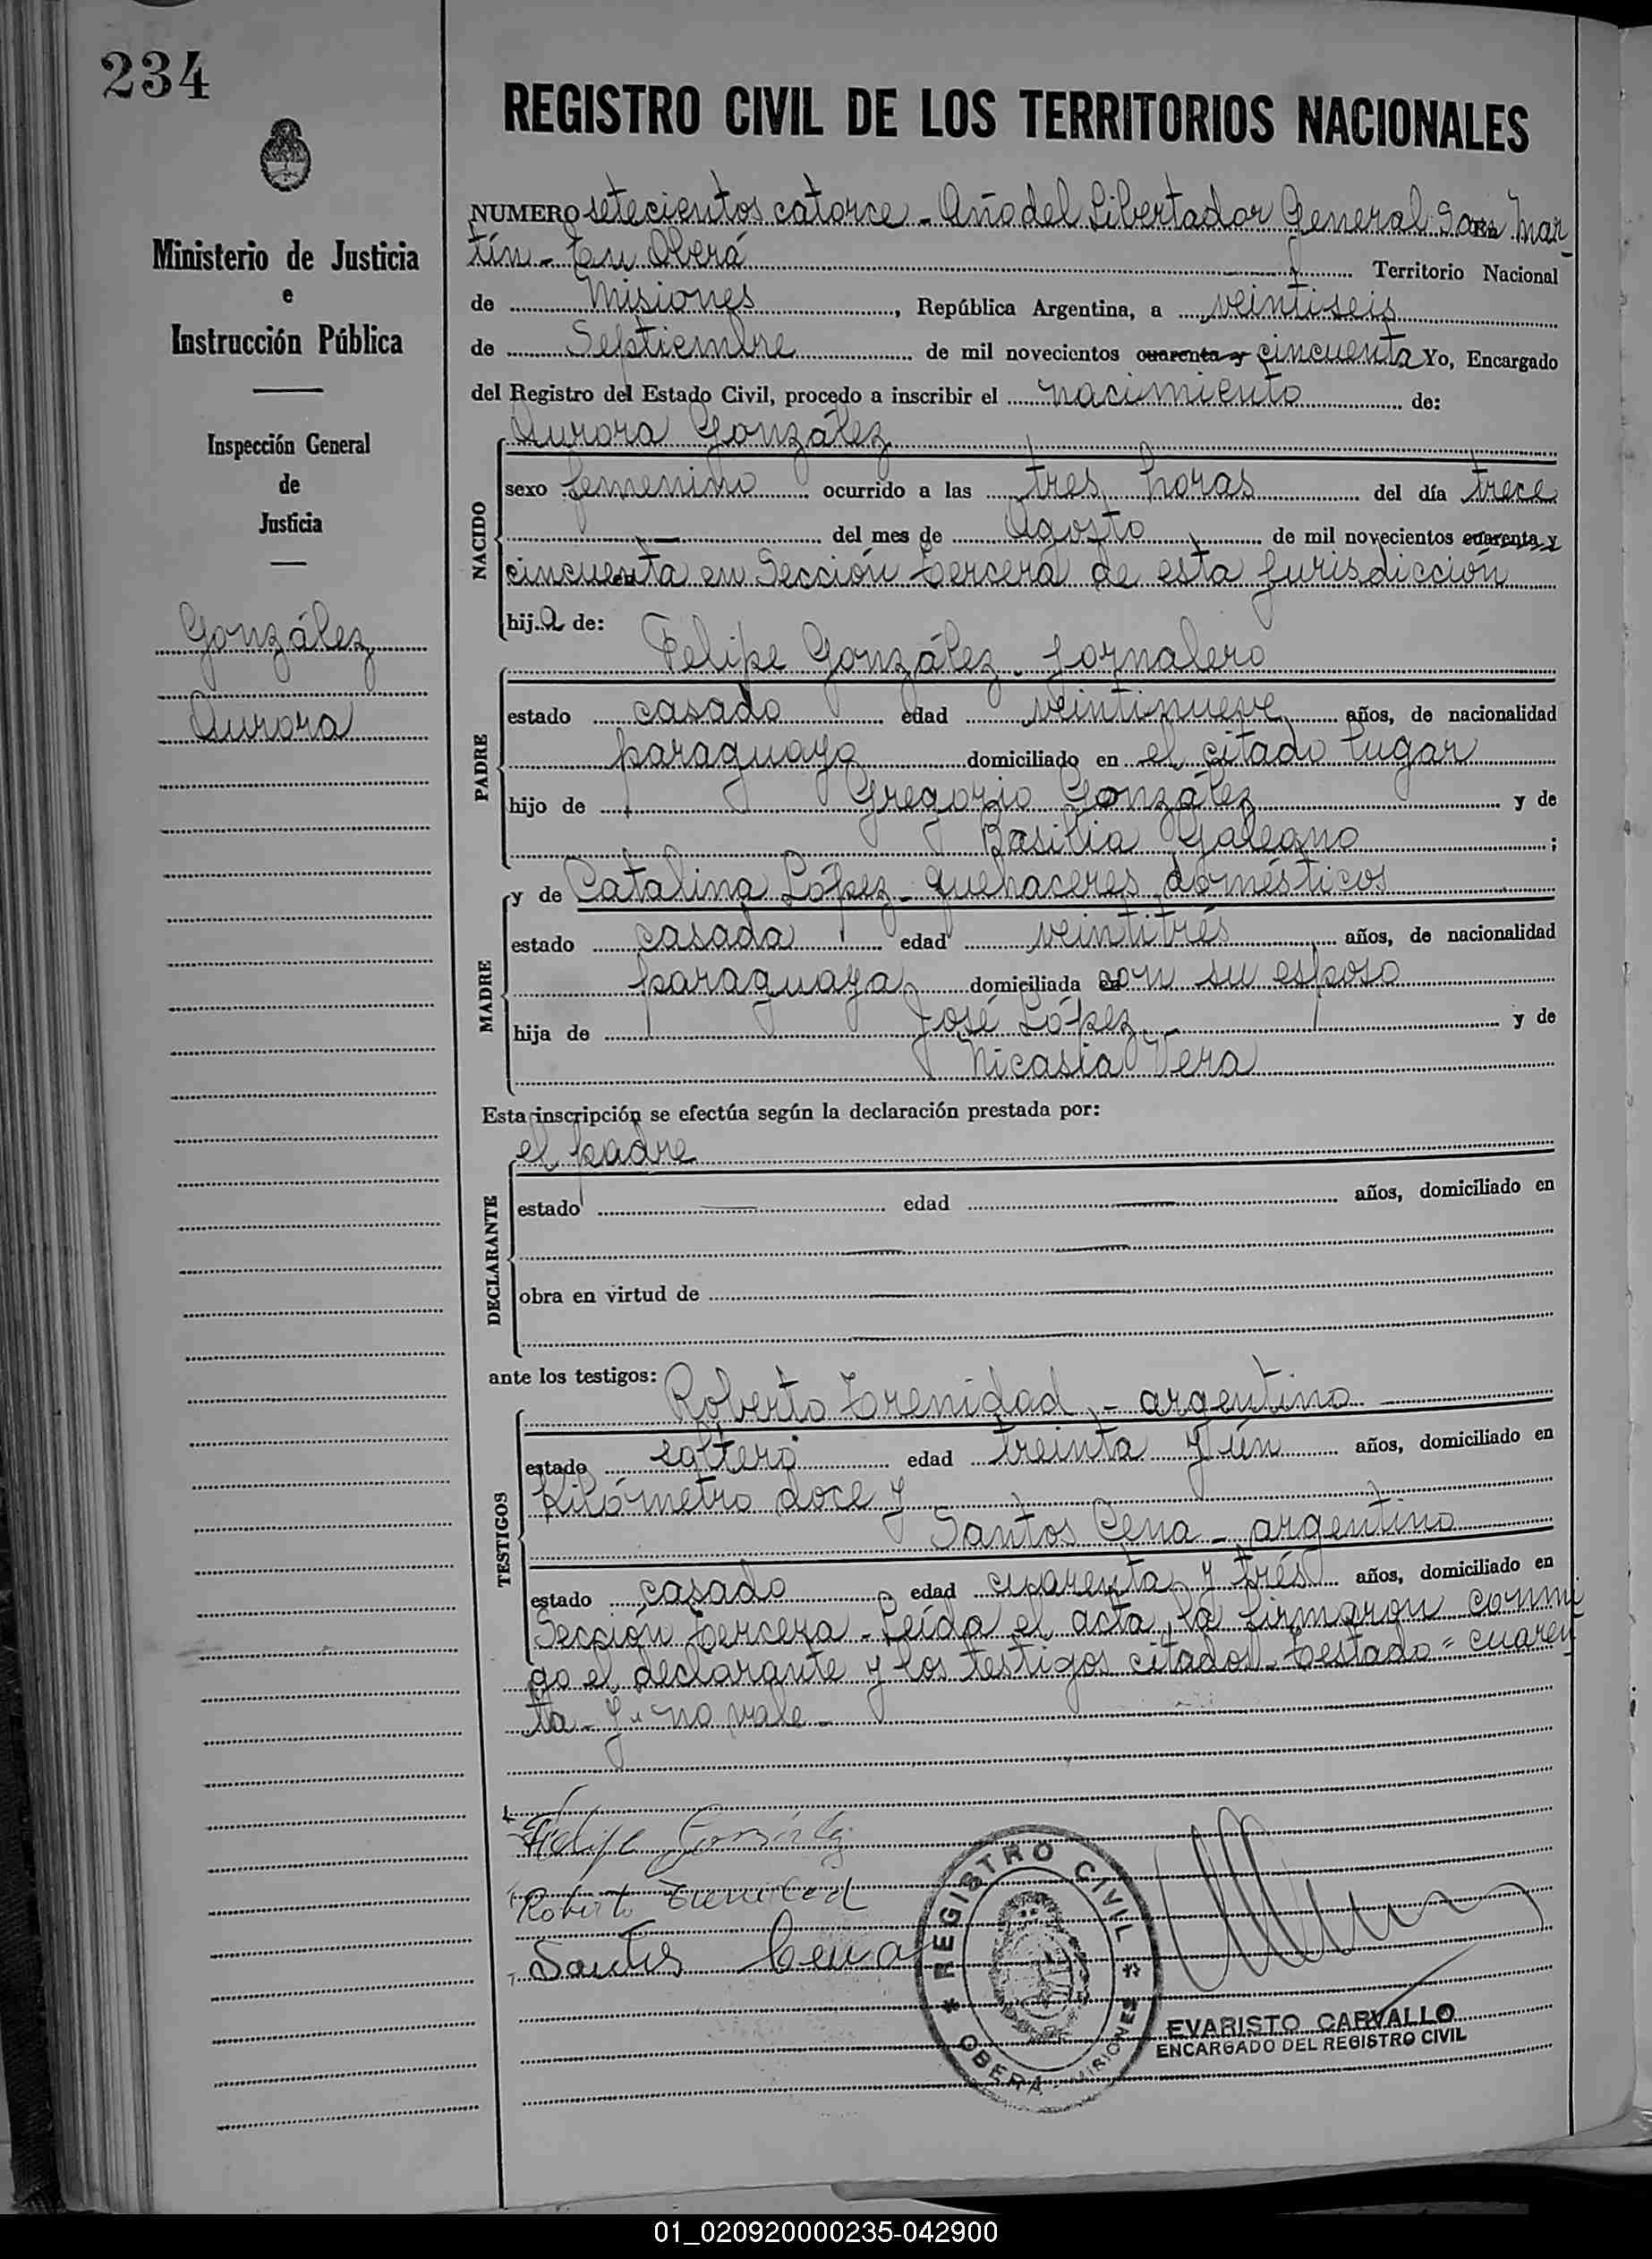 234
REGISTRO CIVIL DE LOS TERRITORIOS NACIONALES
Ministerio de Justicia
e
Instrucción Pública
Inspección General
de
Justicia
González
Aurora
NUMERO setecientos catorce - Año del Libertador General San Mar
tín - En Oberá Territorio Nacional
de Misiones, República Argentina, a veintiseis
de Septiembre de mil novecientos cuarenta y cincuenta Yo, Encargado
del Registro del Estado Civil, procedo a inscribir el nacimiento de:
Aurora González
NACIDO
sexo femenino ocurrido a las tres horas del día trece
del mes de Agosto de mil novecientos cuarenta y
cincuenta en Sección tercera de esta jurisdicción
hija de:
Felipe González - jornalero
PADRE
estado casado edad veintinueve años, de nacionalidad
paraguayo domiciliado en el citado lugar
hijo de Gregorio González y de
Basilia Galeano ;
y de Catalina López - quehaceres domésticos
MADRE
estado casada edad veintitrés años, de nacionalidad
paraguaya domiciliada con su esposo
hija de José López - y de
Nicasia Vera
Esta inscripción se efectúa según la declaración prestada por:
el padre
DECLARANTE
estado edad años, domiciliado en
obra en virtud de
ante los testigos:
Roberto Trenidad - argentino
TESTIGOS
estado soltero edad treinta y ún años, domiciliado en
Kilómetro doce y
Santos Cena - argentino
estado casado edad cuarenta y trés años, domiciliado en
Sección tercera - Leída el acta, la firmaron conmi
go el declarante y los testigos citados - testado = cuaren
ta - y - no vale -
Felipe González
Roberto Trenidad
Santos Cena
REGISTRO CIVIL
OBERA - MISIONES
EVARISTO CARVALLO
ENCARGADO DEL REGISTRO CIVIL
01_020920000235-042900